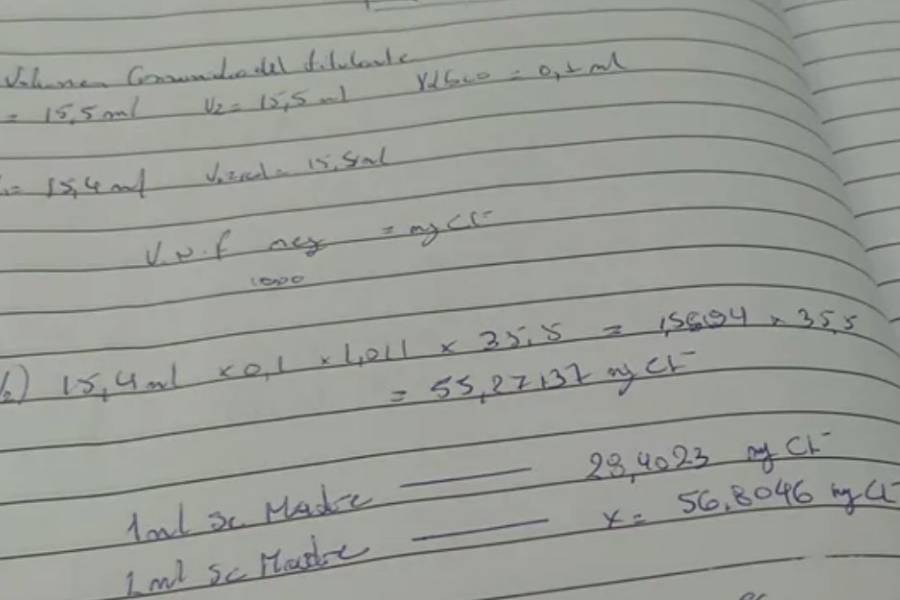 Volumen Consumido del titulante
= 15,5 ml V2 = 15,5 ml = 0,1 ml
= 15,4 ml V2real = 15,5ml
V.N.f meq = mg Cl-
1000
15,4 ml x 0,1 x 1,011 x 35,5 = x 35,5
= 55,27137 mg Cl-
1ml Sc Madre —— 28,4023 mg Cl-
ml Sc Madre —— x = 56,8046 mg Cl-